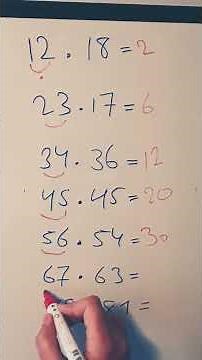 12 · 18 = 2
23 · 17 = 6
34 · 36 = 12
45 · 45 = 20
56 · 54 = 30
67 · 63 =
=